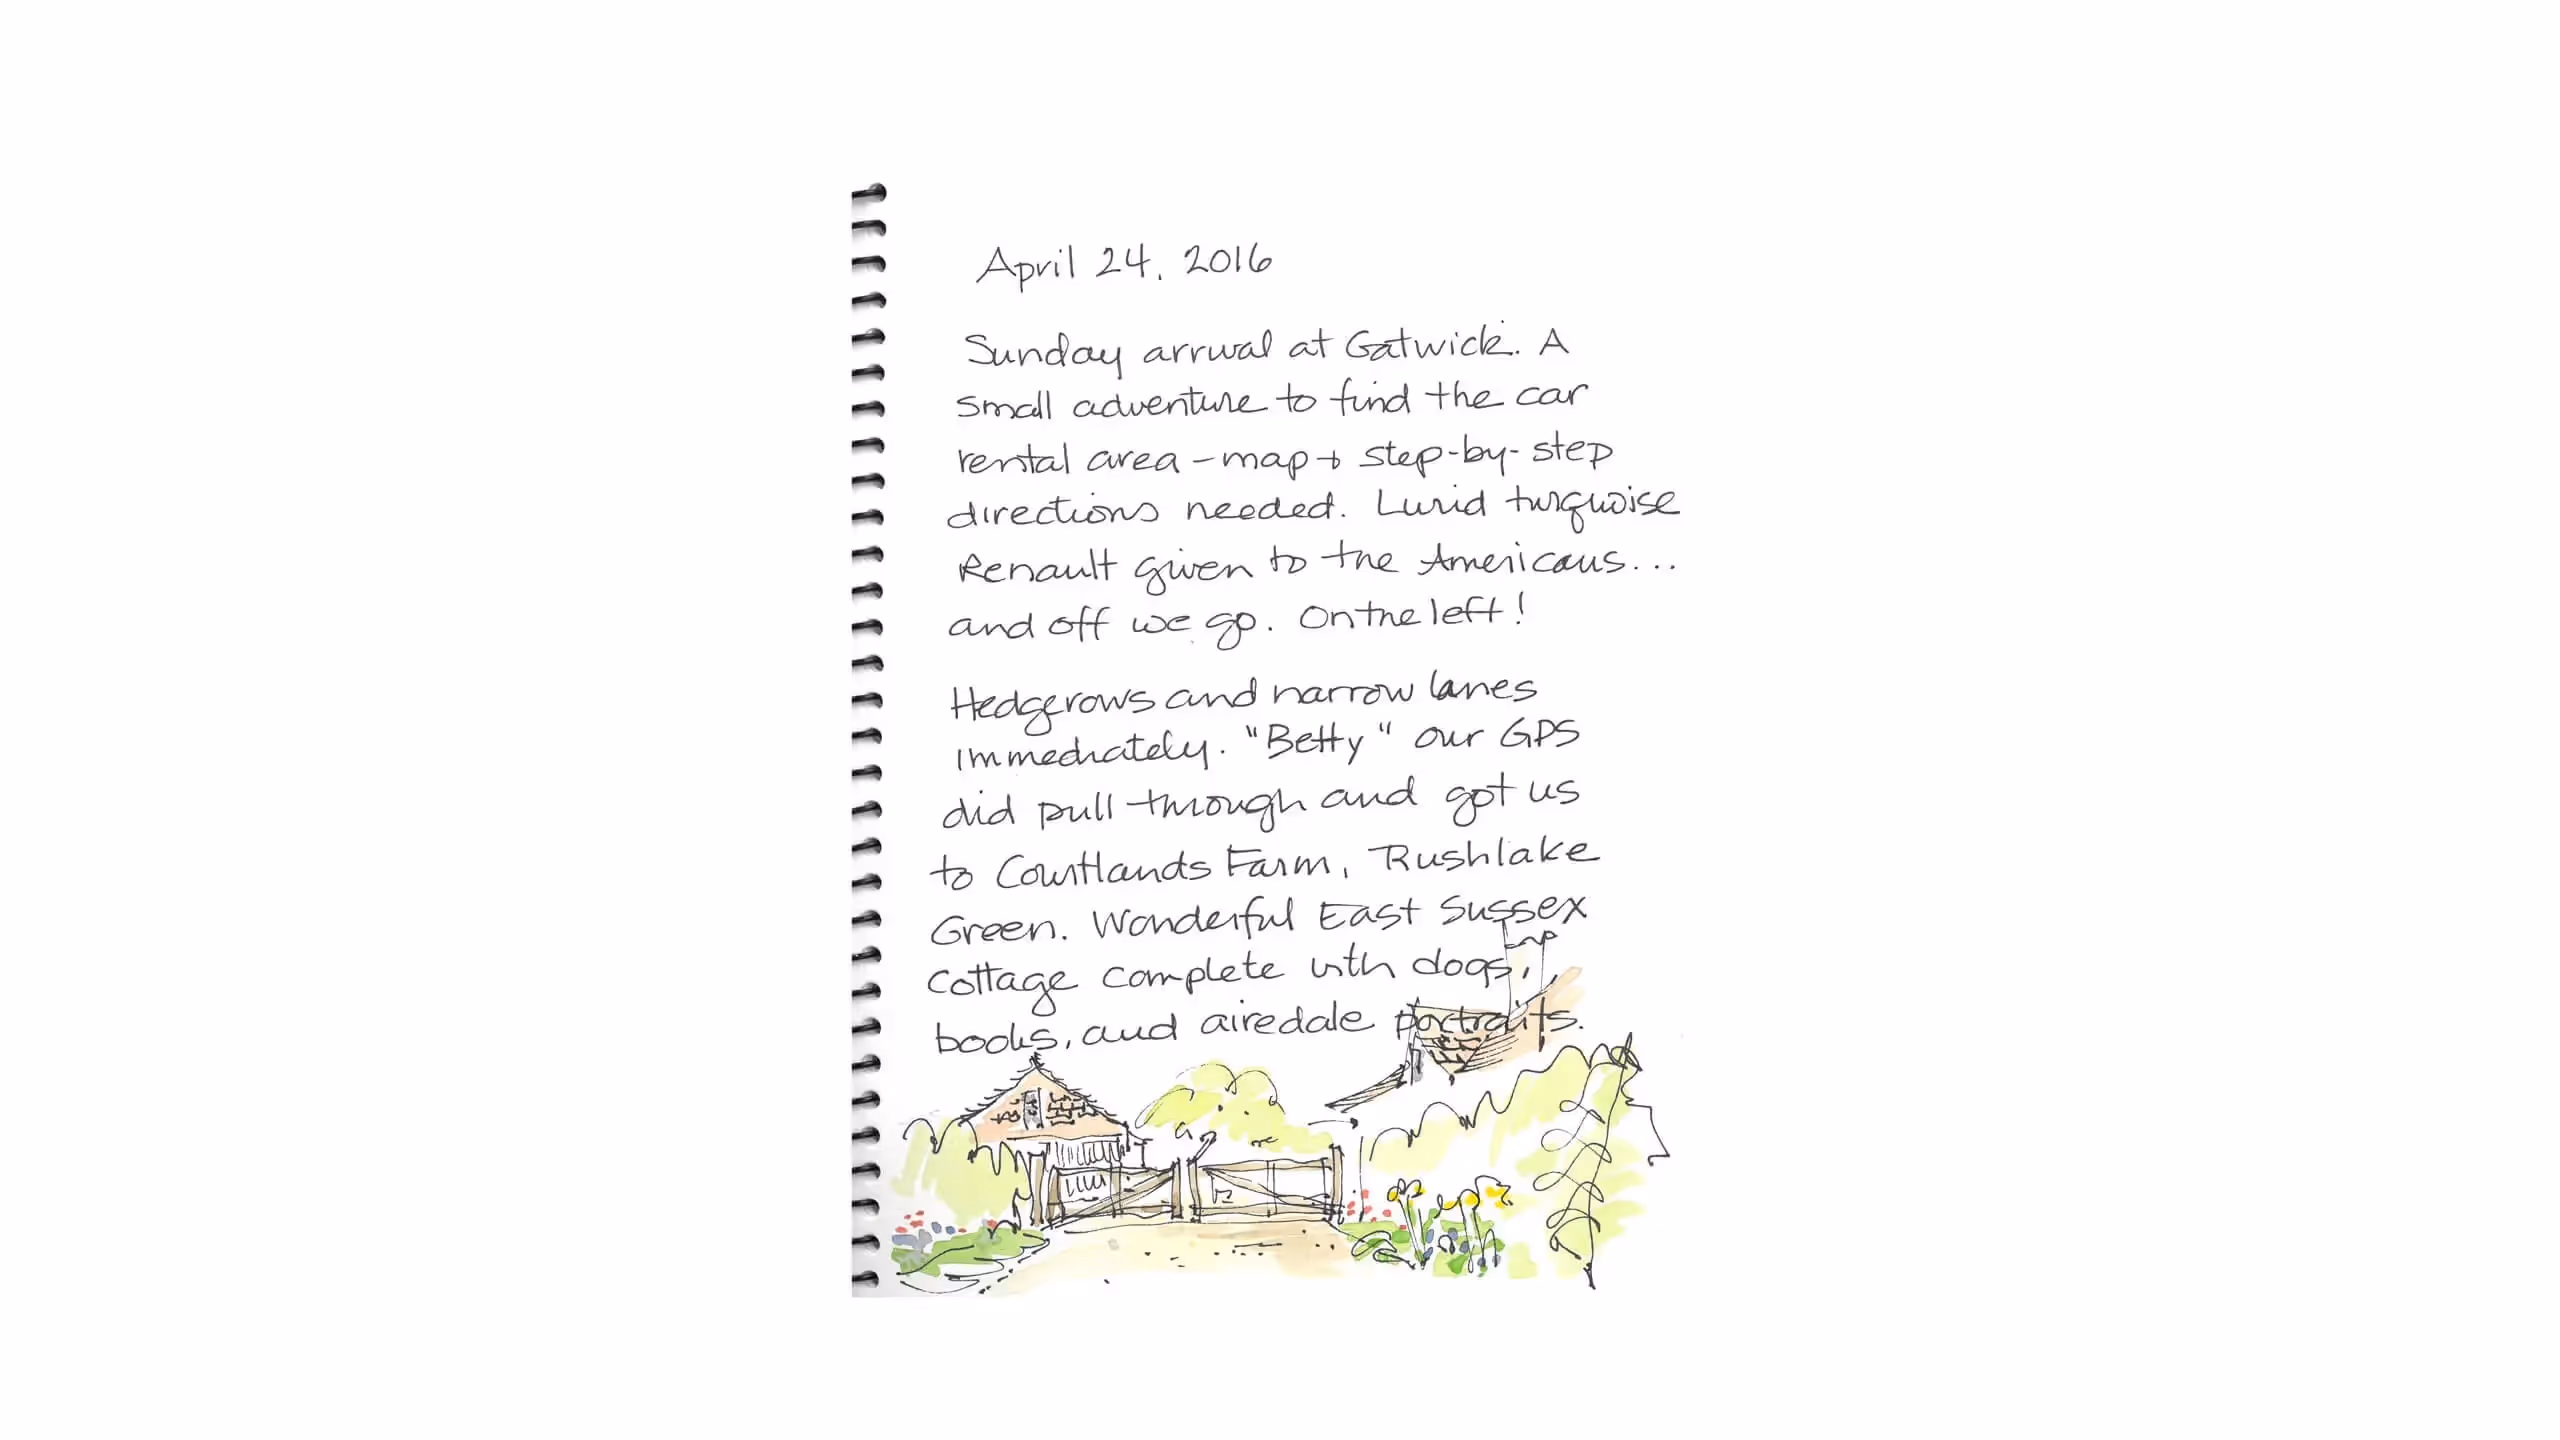 April 24, 2016
Sunday arrival at Gatwick. A
small adventure to find the car
rental area - map + step-by-step
directions needed. Lurid turquoise
Renault given to the Americans...
and off we go. On the left!
Hedgerows and narrow lanes
immediately. "Betty" our GPS
did pull through and got us
to Courtlands Farm, Rushlake
Green. Wonderful East Sussex
cottage complete with dogs,
books, and airedale portraits.